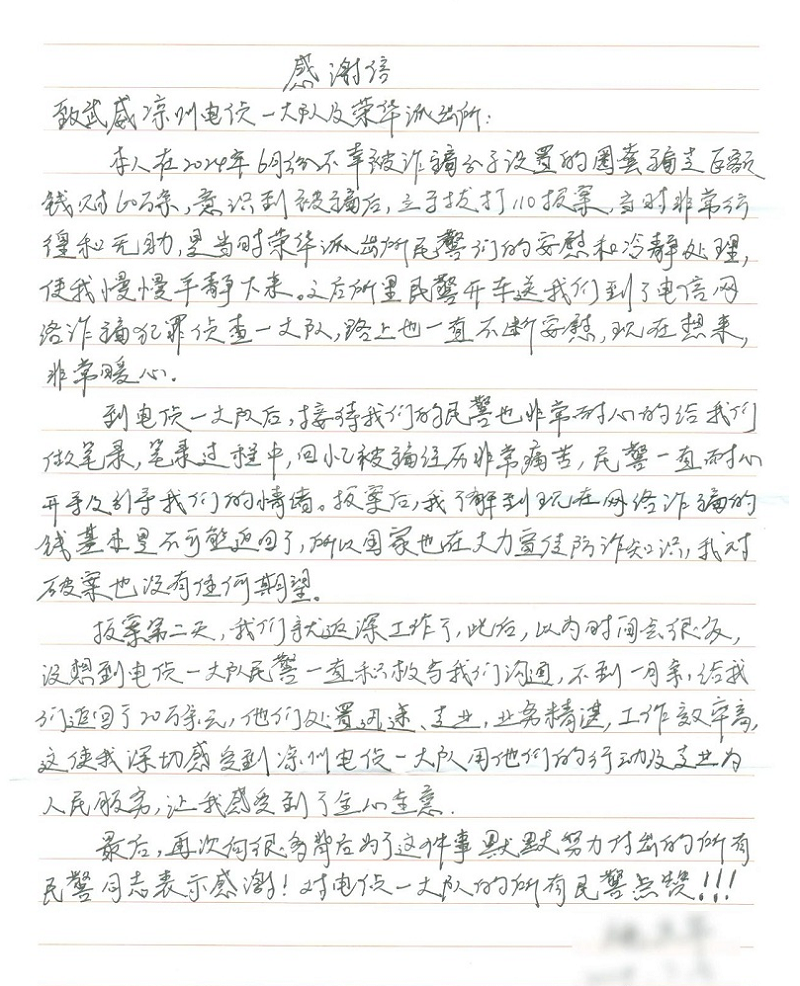 感谢信
致武威凉州电侦一大队及荣华派出所:
本人在2024年6月份不幸被诈骗分子设置的圈套骗走巨额
钱财60万余,意识到被骗后,立于拔打110报案,当时非常彷
徨和无助,是当时荣华派出所民警们的安慰和冷静处理,
使我慢慢平静下来。之后所里民警开车送我们到了电信网
络诈骗犯罪侦查一大队,路上也一直不断安慰,现在想来,
非常暖心.
到电侦一大队后,接待我们的民警也非常耐心的给我们
做笔录,笔录过程中,回忆被骗经历非常痛苦,民警一直耐心
开导及引导我们的情绪。报案后,我了解到现在网络诈骗的
钱基本是不可能追回了,所以国家也在大力宣传防诈知识,我对
破案也没有任何期望。
报案第二天,我们就返深工作了,此后,以为时间会很久,
没想到电侦一大队民警一直积极与我们沟通,不到一月余,给我
们追回了20万余元,他们处置迅速、专业,业务精湛,工作效率高,
这使我深切感受到凉州电侦一大队用他们的行动及专业为
人民服务,让我感受到了全心全意.
最后,再次向很多背后为了这个件事默默努力付出的所有
民警同志表示感谢!对电侦一大队的所有民警点赞!!!